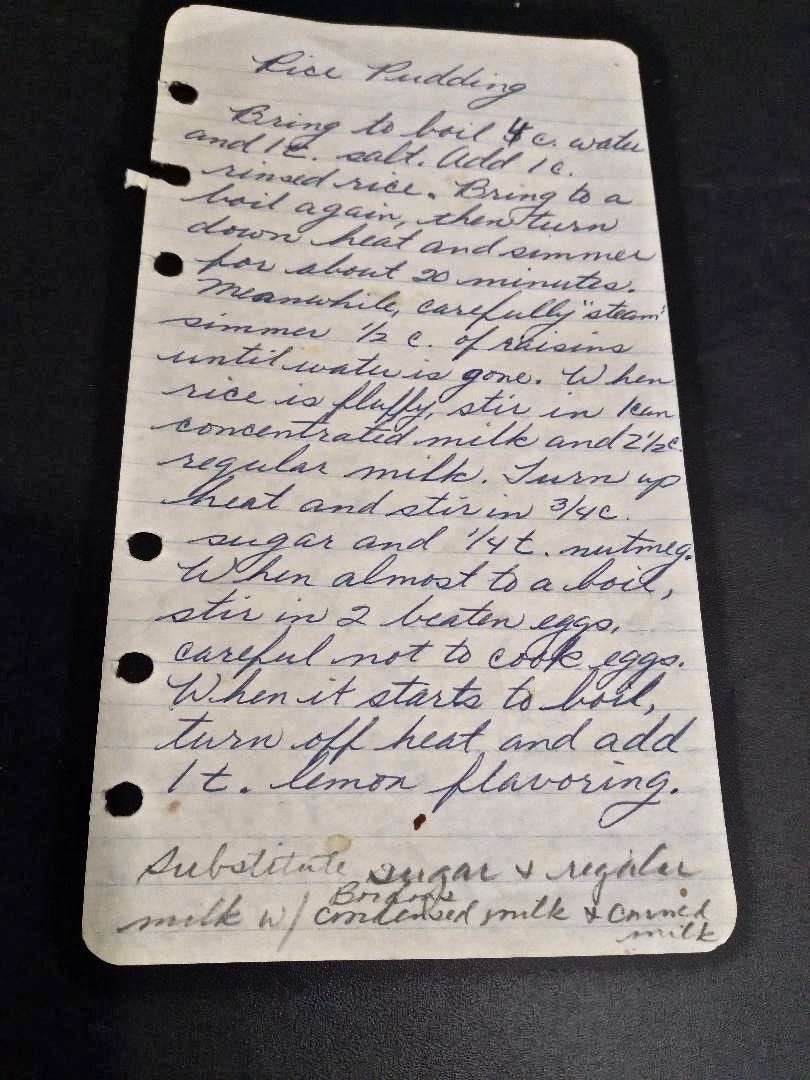 Rice Pudding
Bring to boil 4 c. water
and 1 t. salt. Add 1 c.
rinsed rice. Bring to a
boil again, then turn
down heat and simmer
for about 20 minutes.
Meanwhile, carefully "steam"
simmer 1/2 c. of raisins
until water is gone. When
rice is fluffy, stir in 1 can
concentrated milk and 2 1/2 c.
regular milk. Turn up
heat and stir in 3/4 c.
sugar and 1/4 t. nutmeg.
When almost to a boil,
stir in 2 beaten eggs,
careful not to cook eggs.
When it starts to boil,
turn off heat and add
1 t. lemon flavoring.
Substitute sugar & regular
Bordons
milk w/ condensed milk & canned
milk